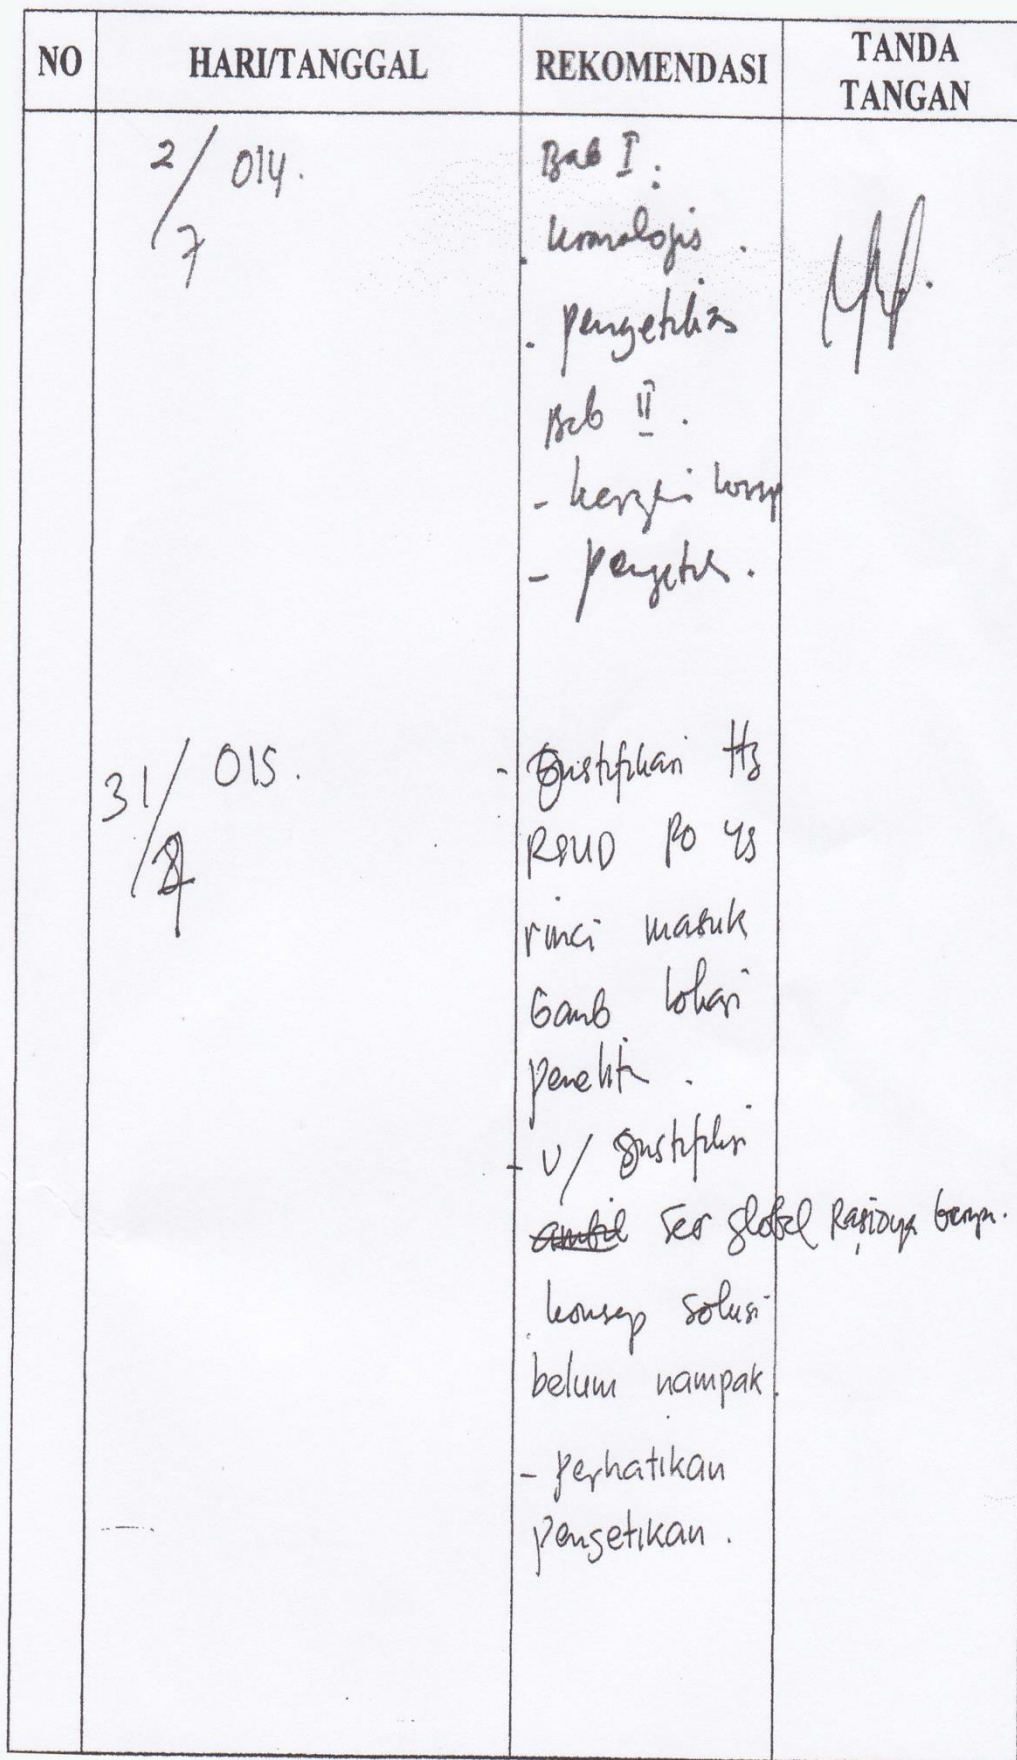 NO HARI/TANGGAL REKOMENDASI TANDA TANGAN
2/7 014. Bab I :
. kronologis .
. pengetikan
Bab II .
- konsep
- pengetik .
31/8 015. - Justifikasi ttg
RSUD Po yg
rinci masuk
Gamb lokasi
penelit .
- U/ Justifikasi
ambil sec global Rasionya berapa.
. konsep solusi
belum nampak.
- perhatikan
pengetikan .